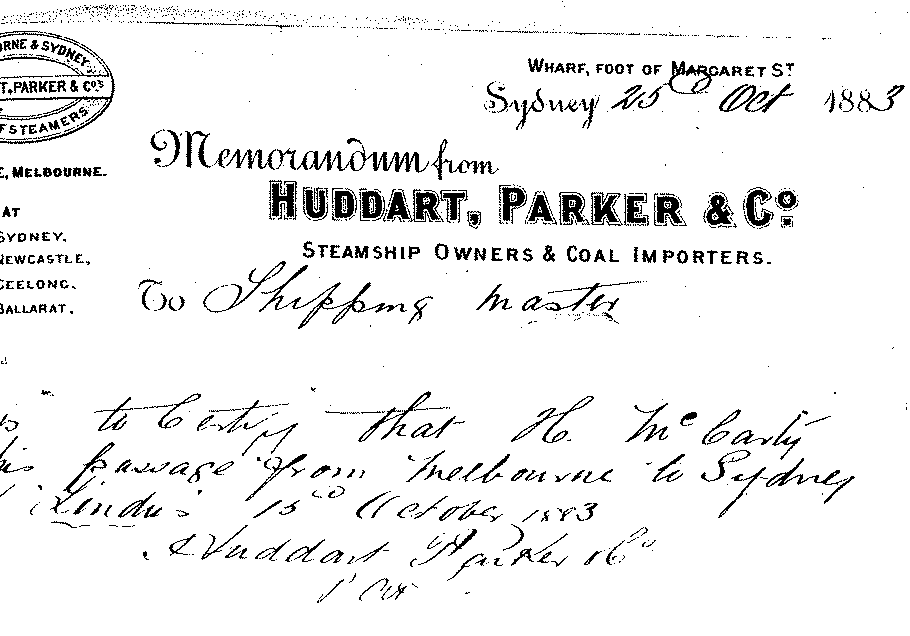 ORNE & SYDNEY
T, PARKER & Co's
F STEAMERS
WHARF, FOOT OF MARGARET ST
Sydney 25 Oct 1883
Memorandum from
E, MELBOURNE.
HUDDART, PARKER & Co.
AT
SYDNEY.
STEAMSHIP OWNERS & COAL IMPORTERS.
NEWCASTLE,
GEELONG.
To Shipping Master
BALLARAT.
to Certify that H. McCarty
his passage from Melbourne to Sydney
15 October 1883
Huddart Parker & Co